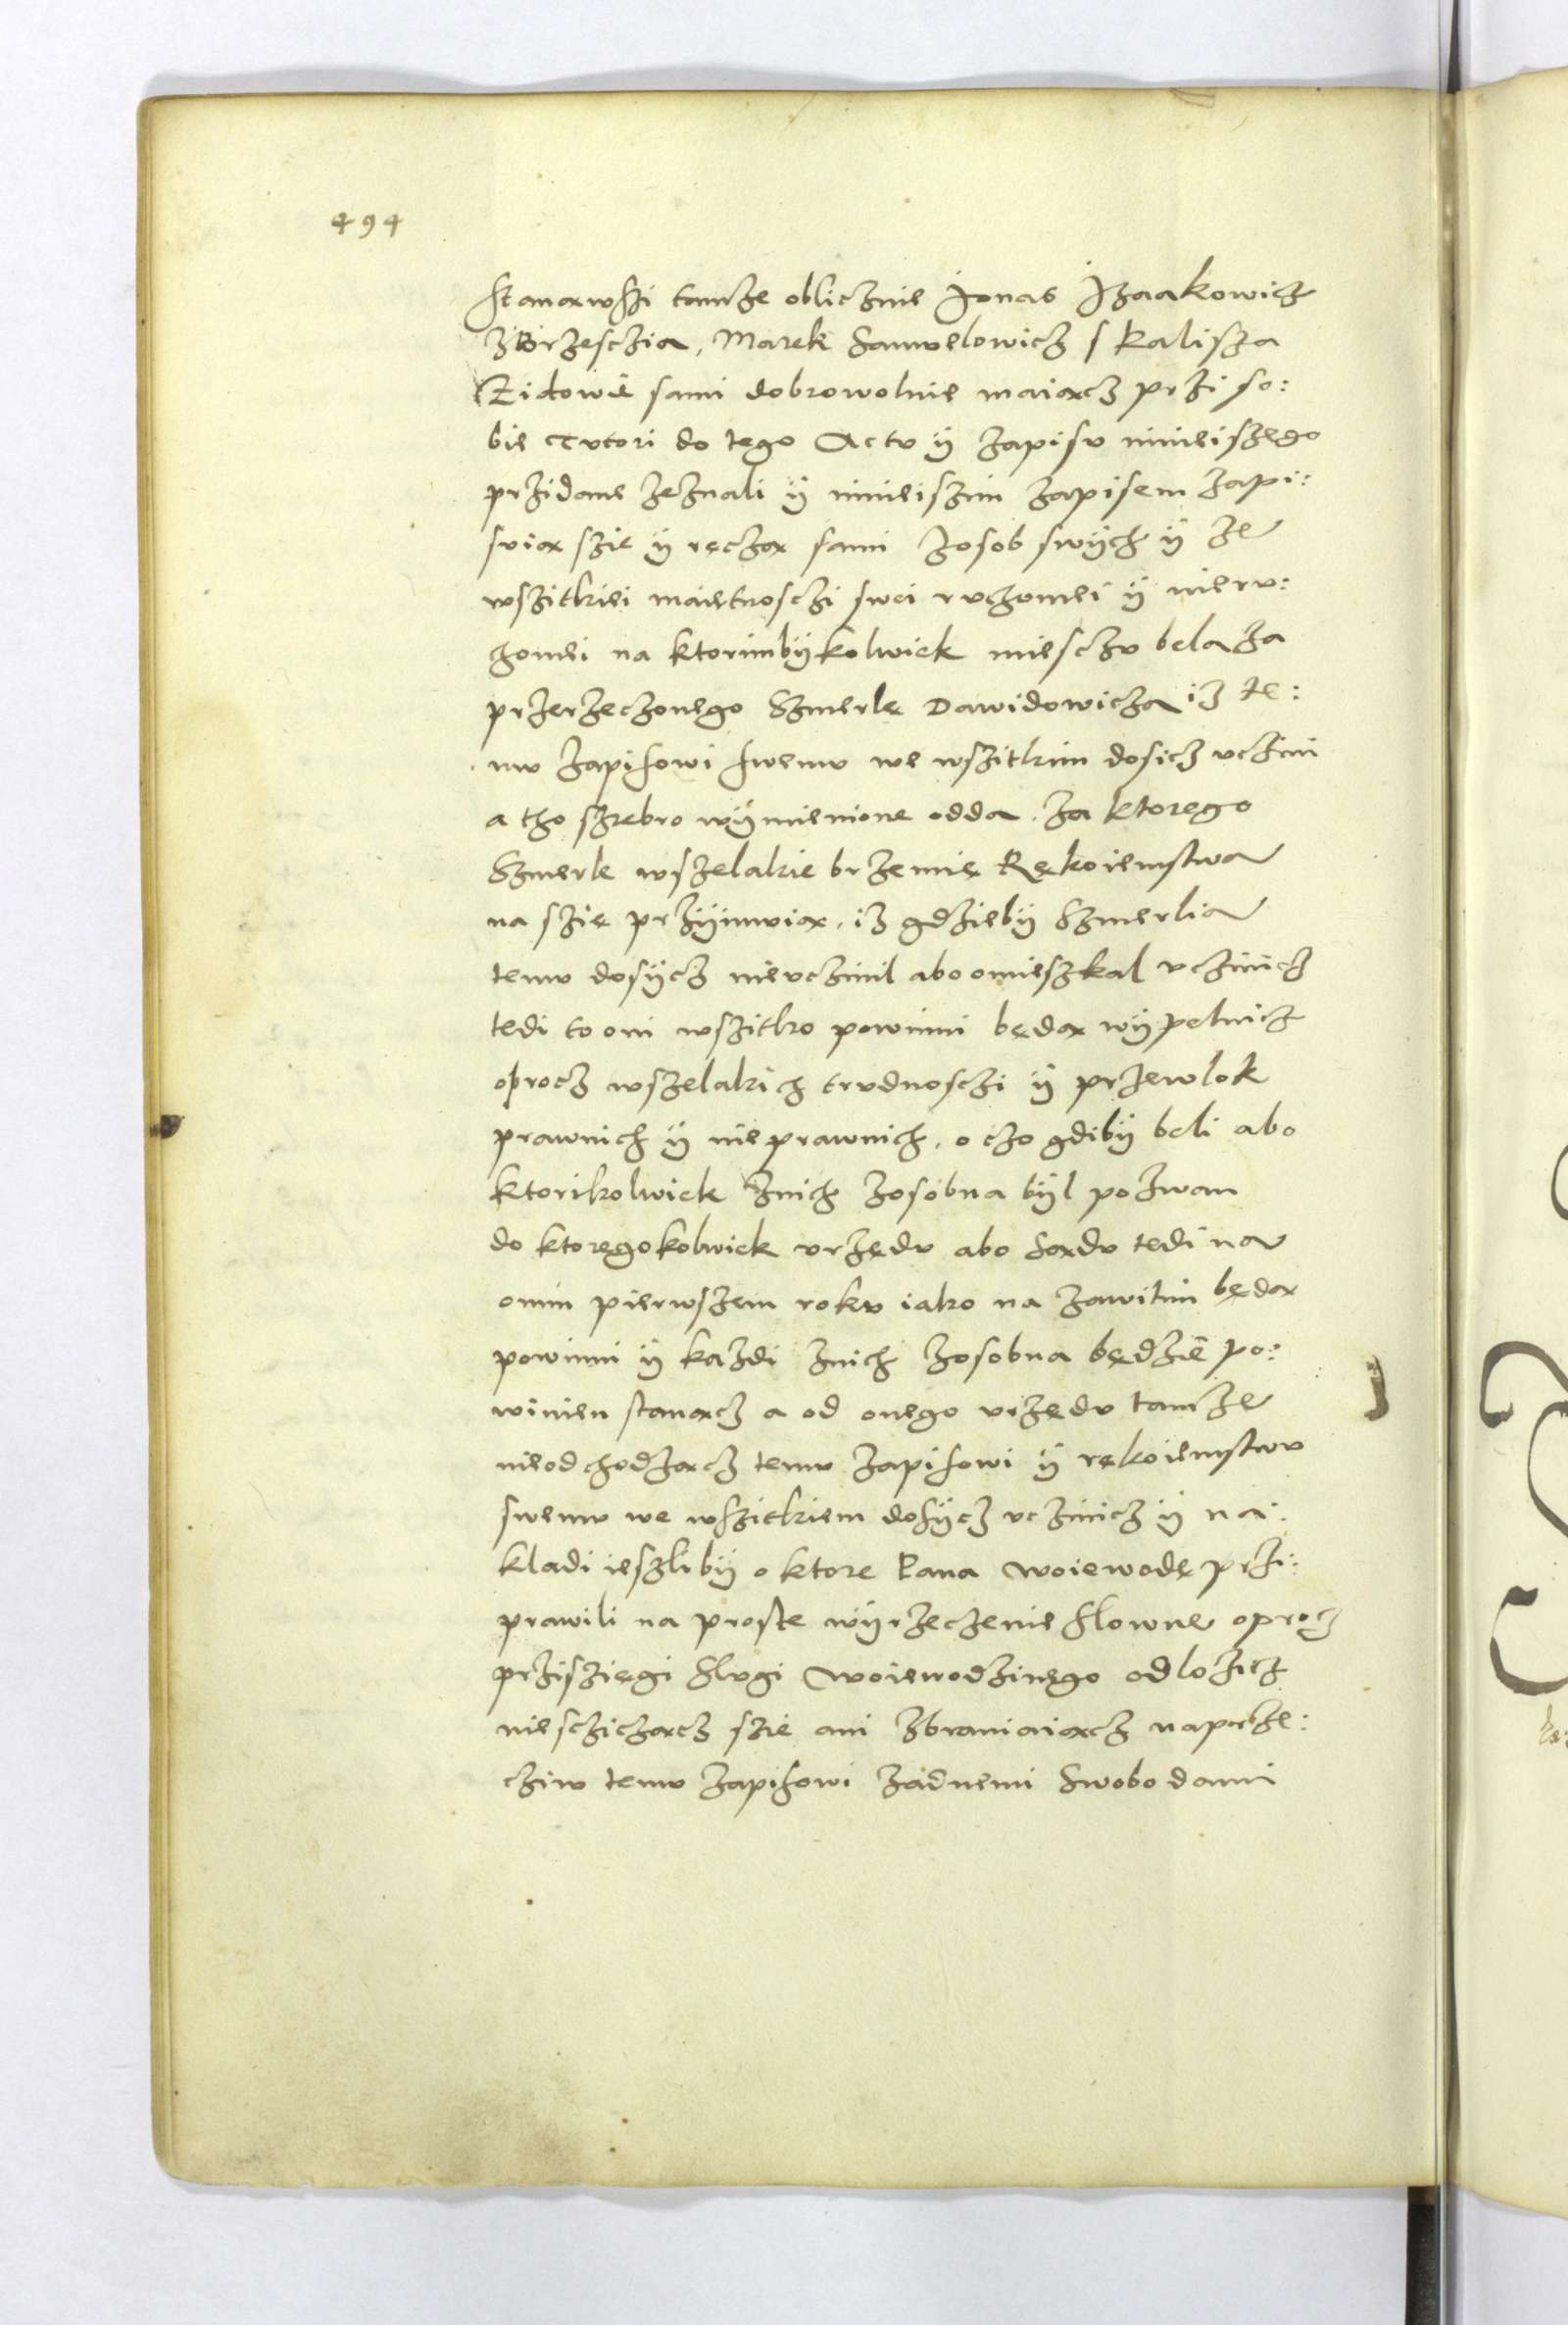 494
Stanąwszi tamże oblicznie Jonas Jzaakowicz
zBrzesczia, Marek Samuelowicz s Kalisza
Zidowie sami dobrowolnie maiącz przi so:
bie Tutori do tego Actu ÿ zapisu ninieiszego
przidane zeznali ÿ ninieiszim zapisem zapi:
suią szie ÿ ręczą sami zosob swÿch ÿ ze
wszitkiei maietnosczi swei ruchomei ÿ nieru:
chomei na ktorimbÿkolwiek miesczu bela za
przerzeczonego Szmerlę Dawidowicza iz te:
mu zapisowi swemu we wszitkim dosicz uczini
a tho szrebro wÿmienione odda. za ktorego
Szmerle wszelakie brzemię Rękoiemstwa
na szię przÿimuią. iz gdziebÿ Szmerlia
temu dosÿcz nieuczinil abo omieszkal uczinicz
tedi to oni wszitko powinni będą wÿpelnicz
oprocz wszelakich trudnosczi ÿ przewlok
prawnich ÿ nieprawnich. o czo gdibÿ beli abo
ktorikolwiek znich zosobna bÿl pozwan
do ktoregokolwiek urzędu abo Sądu tedi na
onim pierwszem roku iako na zawitim będą
powinni ÿ kazdi znich zosobna będzie po:
winien stanącz a od onego urzędu tamze
nieodchodzącz temu zapisowi ÿ rękoiemstwu
swemu we wszitkiem dosÿcz uczinicz ÿ na:
kladi ieszlibÿ o ktore Pana Woiewodę przi:
prawili na proste wÿrzeczenie slowne oprocz
przisziegi slugi Woiewodzinego odlozicz
niescziczącz szie ani zbraniaiącz naprze:
cziw temu zapisowi zadnemi Swobodami